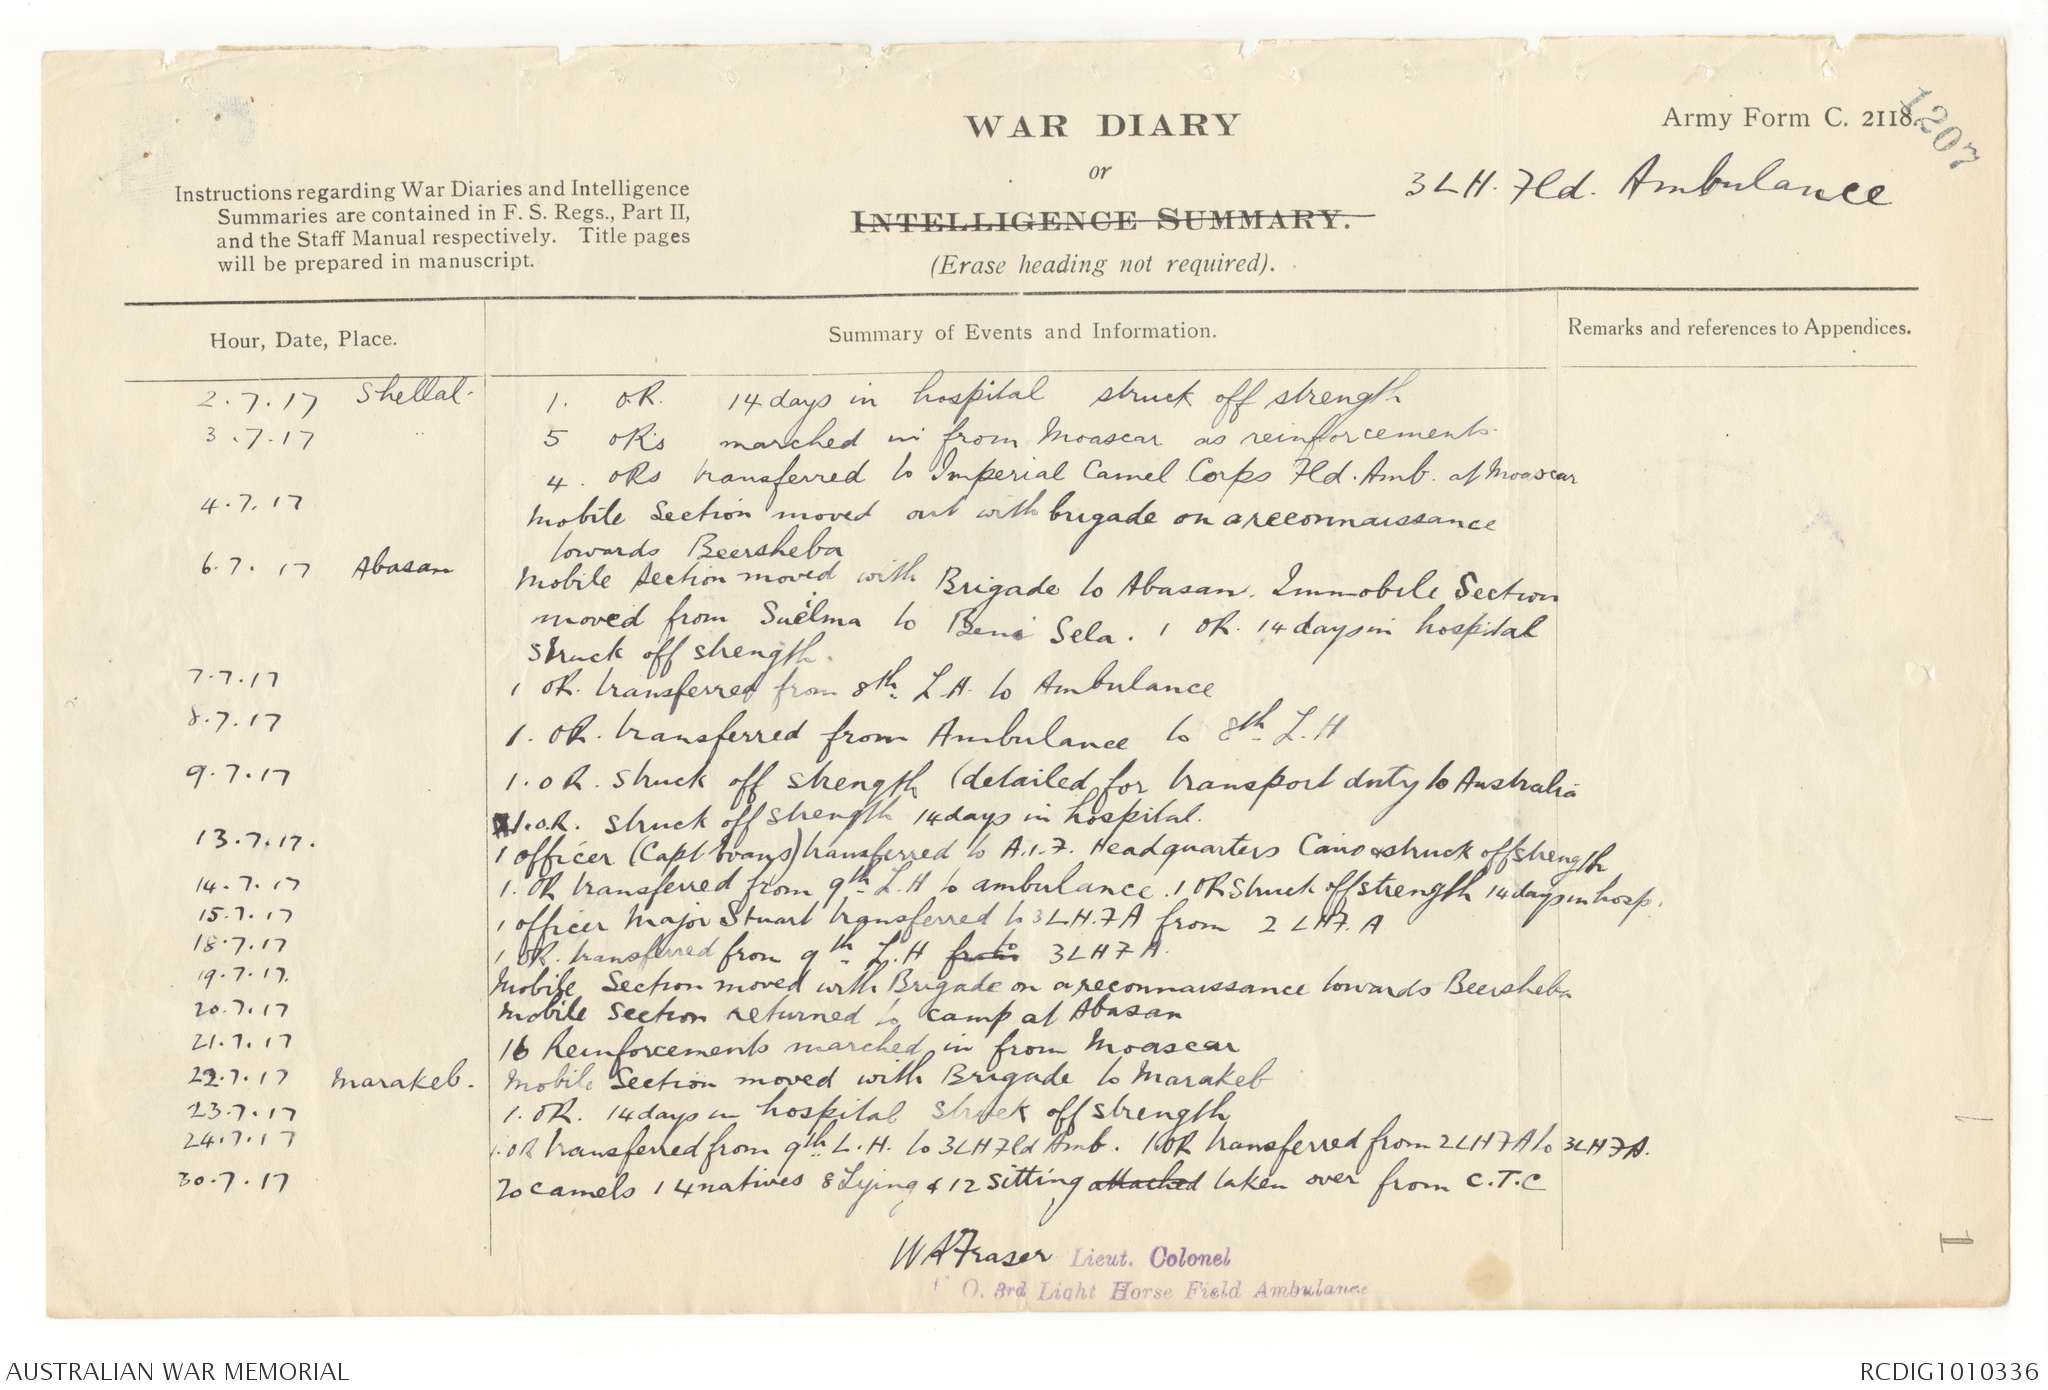 WAR DIARY
or
INTELLIGENCE SUMMARY.
(Erase heading not required).
Army Form C. 2118.
1207
3 LH. Fld. Ambulance
Instructions regarding War Diaries and Intelligence
Summaries are contained in F. S. Regs., Part II,
and the Staff Manual respectively. Title pages
will be prepared in manuscript.
Hour, Date, Place. Summary of Events and Information. Remarks and references to Appendices.
2.7.17 Shellal. 1. OR. 14 days in hospital struck off strength
3.7.17 " 5 OR's marched in from Moascar as reinforcements
4. ORs transferred to Imperial Camel Corps Fld. Amb. at Moascar
4.7.17 Mobile Section moved out with brigade on a reconnaissance
towards Beersheba
6.7.17 Abasan Mobile Section moved with Brigade to Abasan. Immobile Section
moved from Suelma to Beni Sela. 1 OR. 14 days in hospital
struck off strength.
7.7.17 1 OR. transferred from 8th L.H. to Ambulance
8.7.17 1. OR. transferred from Ambulance to 8th L.H
9.7.17 1. OR. struck off strength (detailed for transport duty to Australia
1. O.R. struck off strength 14 days in hospital.
13.7.17. 1 Officer (Capt Evans) transferred to A.I.F. Headquarters Cairo & struck off strength
14.7.17 1. OR transferred from 9th L.H to ambulance. 1 OR struck off strength 14 days in hosp.
15.7.17 1 officer Major Stuart transferred to 3 LH.FA from 2 LHF.A
18.7.17 1 OR. transferred from 9th L.H from to 3LHFA.
19.7.17. Mobile Section moved with Brigade on a reconnaissance towards Beersheba
20.7.17 Mobile Section returned to camp at Abasan
21.7.17 16 Reinforcements marched in from Moascar
22.7.17 Marakeb. Mobile Section moved with Brigade to Marakeb
23.7.17 1. OR. 14 days in hospital struck off strength
24.7.17 1. OR transferred from 9th L.H. to 3LH Fld Amb. 1 OR transferred from 2LHFA to 3LHFA.
30.7.17 20 camels 14 natives 8 Lying & 12 sitting attached taken over from C.T.C
WAFraser Lieut. Colonel
O. 3rd Light Horse Field Ambulance
1
1
AUSTRALIAN WAR MEMORIAL
RCDIG1010336